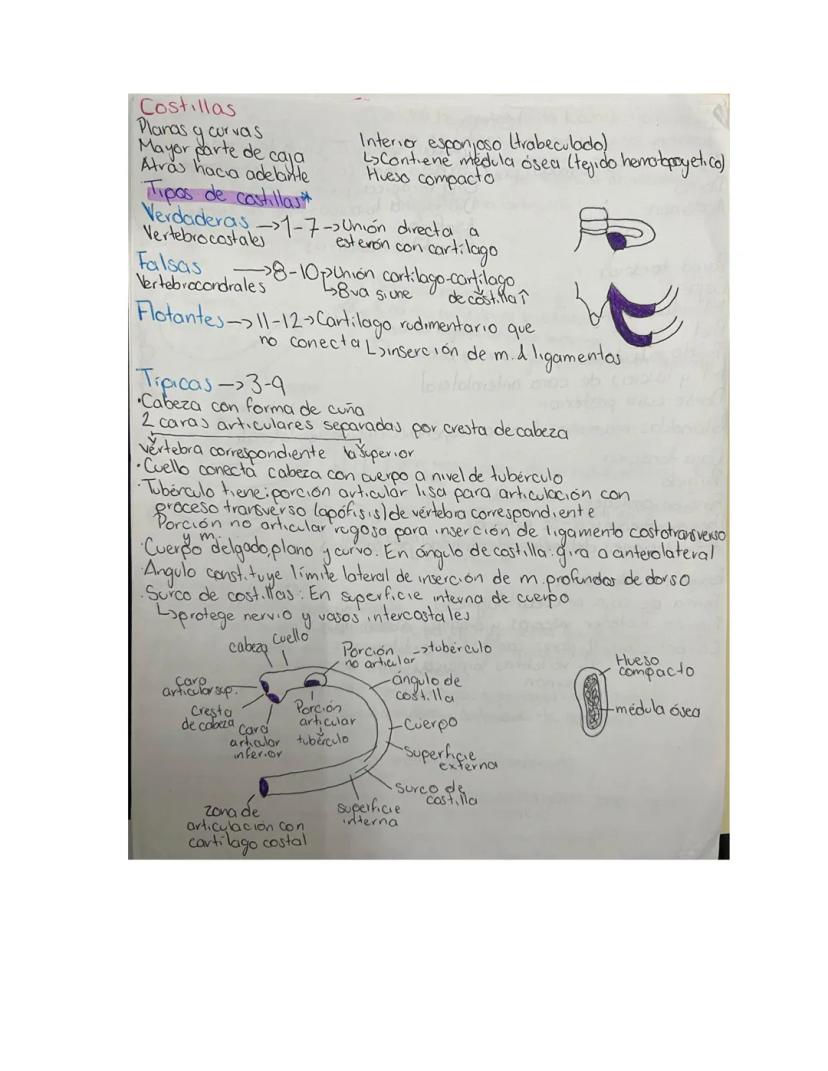 Costillas
Planas y curvas
Mayor parte de caja
Atrás hacia adelante
Interior esponjoso (trabeculado)
↳Contiene médula ósea (tejido hematopoyetico)
Hueso compacto
Tipos de costillas*
Verdaderas →1-7→Unión directa a
Vertebrocostales esterón con cartílago
Falsas →8-10→Unión cartílago-cartílago
Vertebrocondrales ↳8va si une de costilla↑
Flotantes→11-12→Cartílago rudimentario que
no conecta ↳inserción de m. d ligamentos
Típicas →3-9
•Cabeza con forma de cuña
2 caras articulares separadas por cresta de cabeza
vértebra correspondiente la superior
•Cuello conecta cabeza con cuerpo a nivel de tubérculo
•Tubérculo tiene: porción articular lisa para articulación con
proceso transverso (apófisis) de vértebra correspondiente
Porción no articular rugosa para inserción de ligamento costotransverso
y m.
•Cuerpo delgado, plano y curvo. En ángulo de costilla: gira a anterolateral
•Angulo constituye límite lateral de inserción de m. profundos de dorso
•Surco de costillas: En superficie interna de cuerpo
↳protege nervio y vasos intercostales
cabeza
cuello
Porción no articular →tubérculo
cara articular sup.
Cresta de cabeza
Cara articular inferior
Porción articular
↓
tubérculo
ángulo de costilla
Cuerpo
superficie externa
surco de costilla
superficie interna
zona de articulación con cartílago costal
Hueso compacto
médula ósea